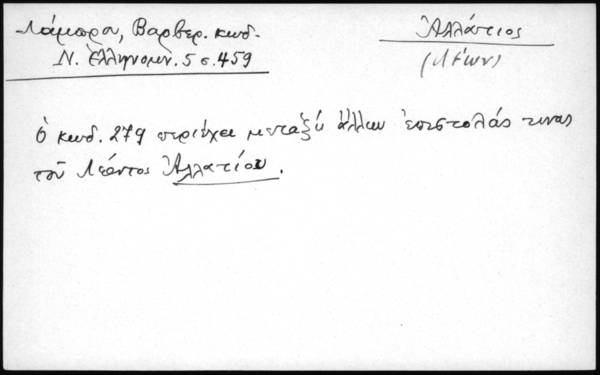 Λάμπρου, Βαρβερ. κωδ.
Ν. Ἑλληνομν. 5 σ. 459
Ἀλλάτιος
(Λέων)
ὁ κωδ. 279 περιέχει μεταξὺ ἄλλων ἐπιστολάς τινας
τοῦ Λέοντος Ἀλλατίου.